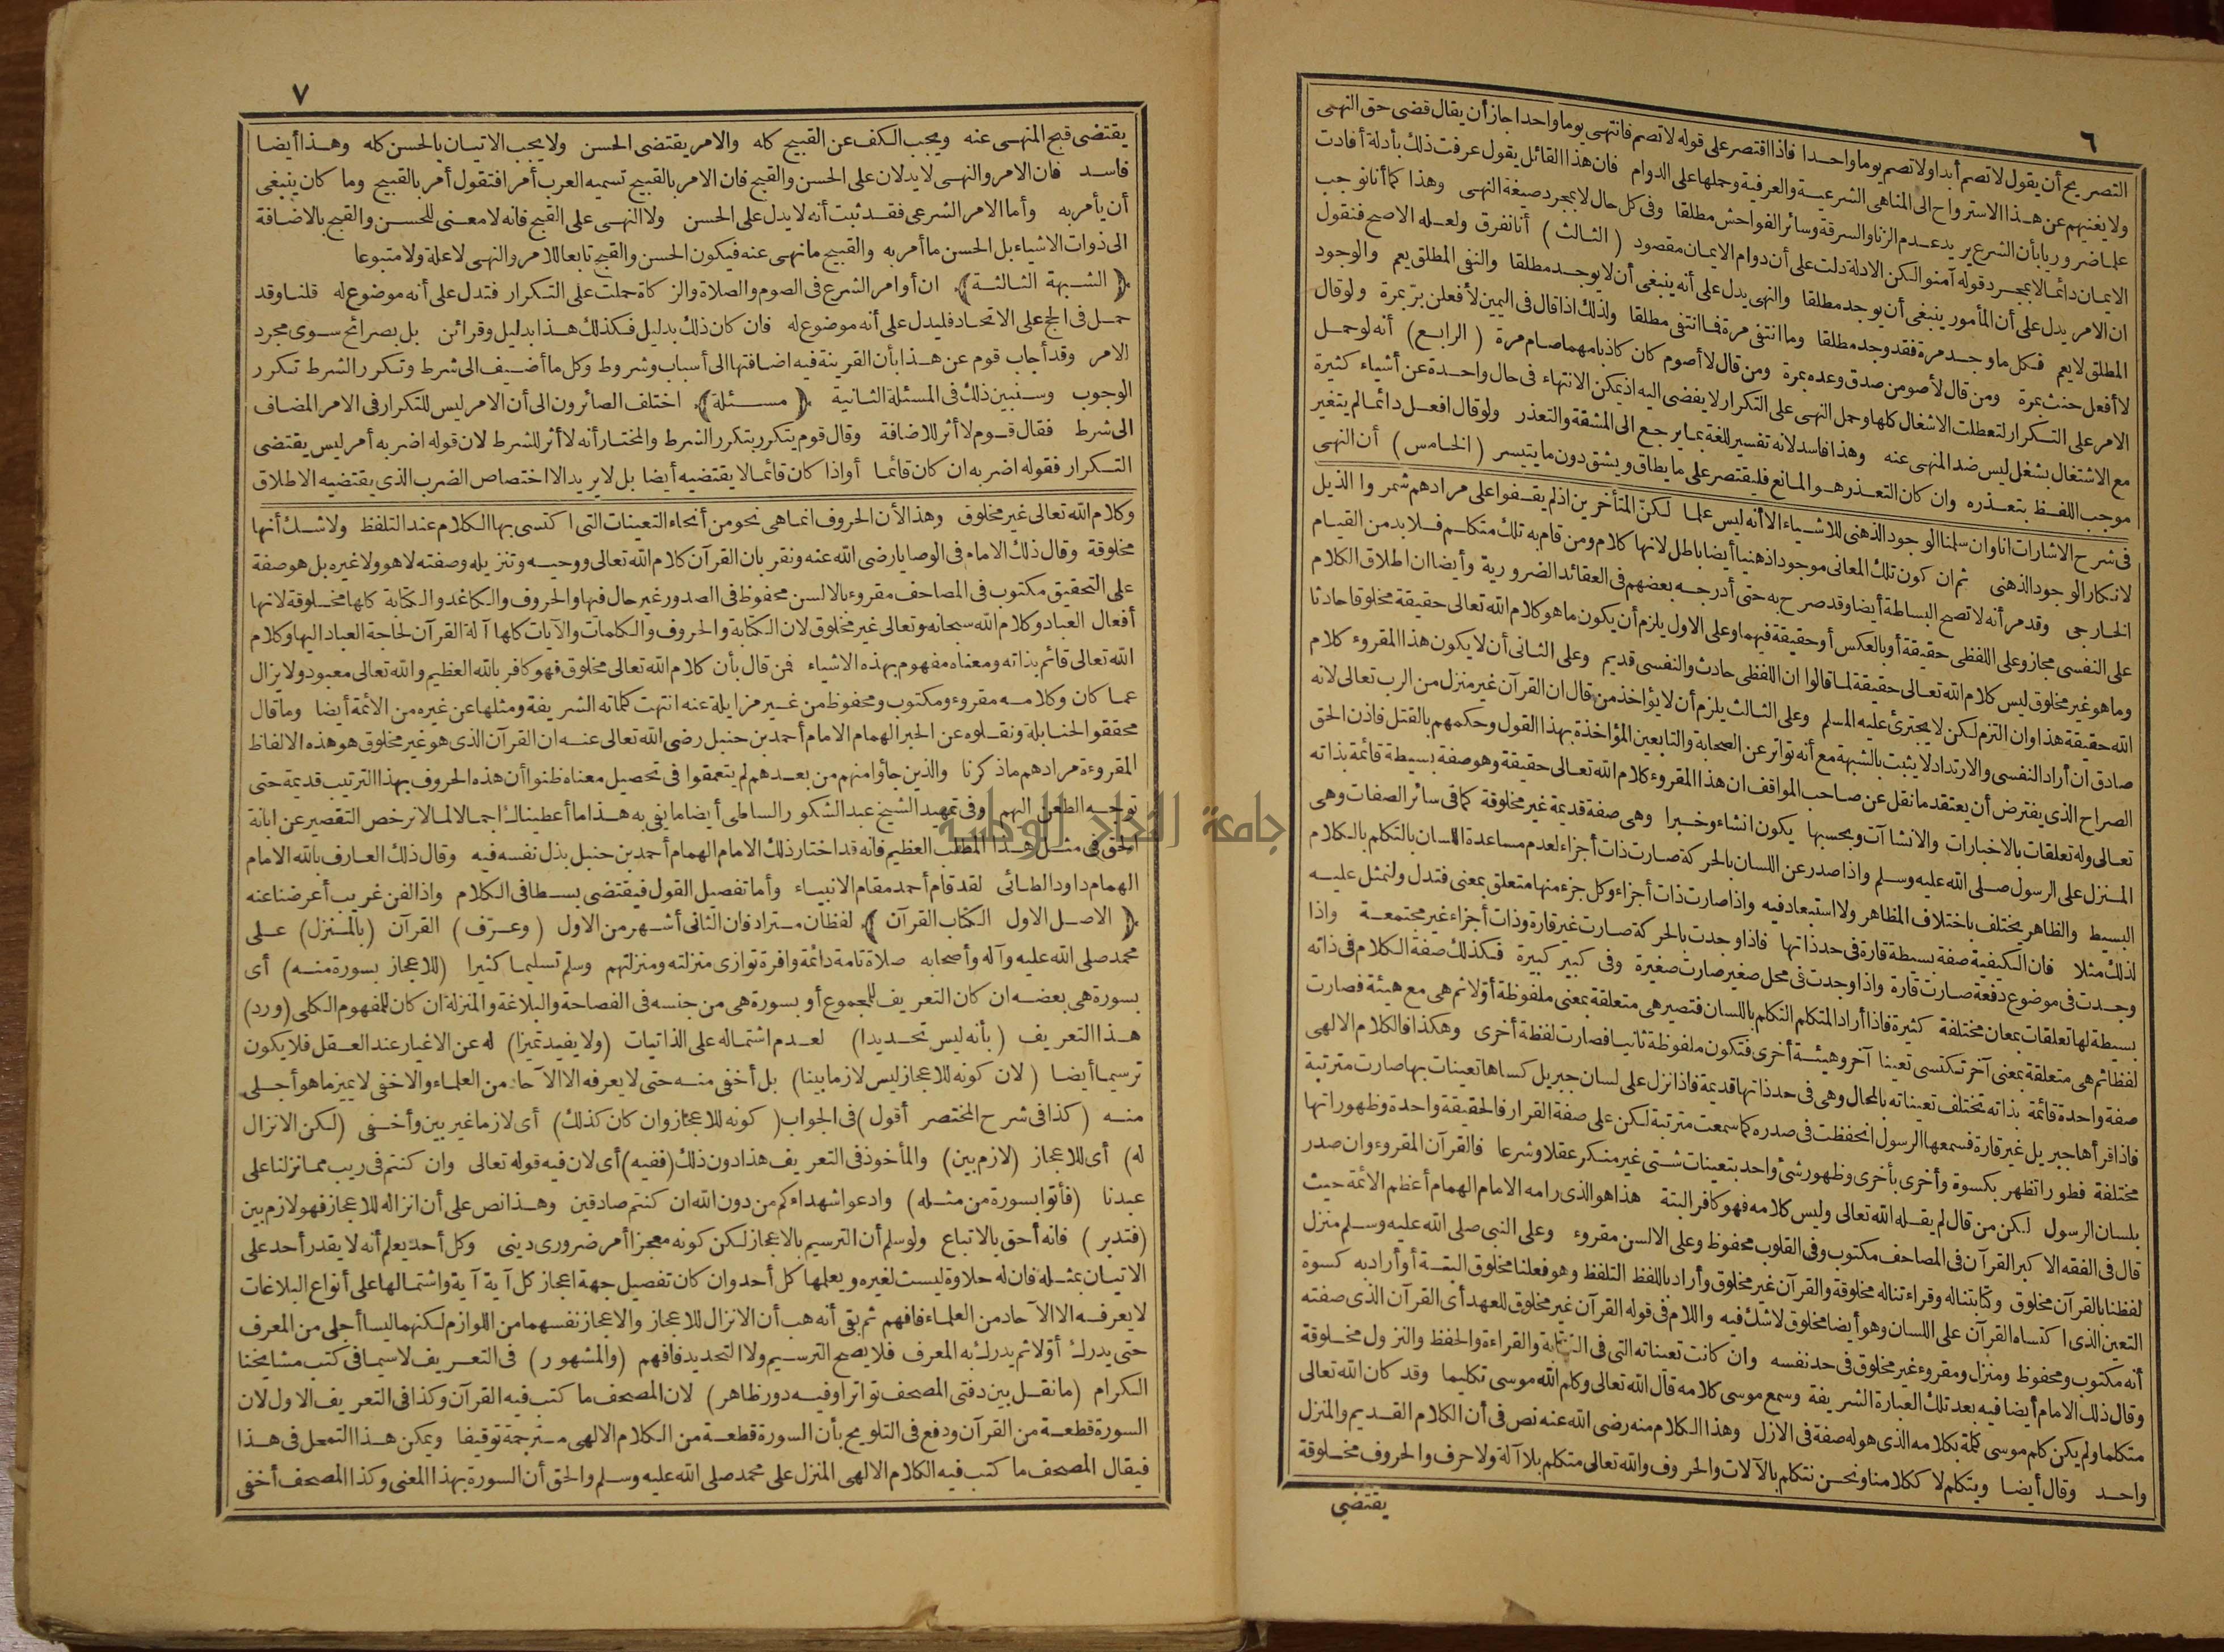 ٦
التصريح أن يقول لا تصم أبدا ولا تصم يوما واحدا فاذا اقتصر على قوله لا تصم فانتهى يوما واحدا جاز أن يقال قضى حق النهى
ولا يغنيهم عن هذا الاسترواح الى المناهى الشرعية والعرفية وحملها على الدوام فان هذا القائل يقول عرفت ذلك بأدلة أفادت
علما ضروريا بأن الشرع يريد عدم الزنا والسرقة وسائر الفواحش مطلقا وفى كل حال لا بمجرد صيغة النهى وهذا كما أنا نوجب
الايمان دائما لا بمجرد قوله آمنوا لكن الادلة دلت على أن دوام الايمان مقصود (الثالث) أنا نفرق ولعله الاصح فنقول
ان الامر يدل على أن المأمور ينبغى أن يوجد مطلقا والنهى يدل على أنه ينبغى أن لا يوجد مطلقا والنفى المطلق يعم والوجود
المطلق لا يعم فكل ما وجد مرة فقد وجد مطلقا وما انتفى مرة فما انتفى مطلقا ولذلك اذا قال فى اليمين لأفعلن بر بمرة ولو قال
لا أفعل حنث بمرة ومن قال لأصومن صدق وعده بمرة ومن قال لا أصوم كان كاذبا مهما صام مرة (الرابع) أنه لو حمل
الامر على التكرار لتعطلت الاشغال كلها وحمل النهى على التكرار لا يفضى اليه اذ يمكن الانتهاء فى حال واحدة عن أشياء كثيرة
مع الاشتغال بشغل ليس ضد المنهى عنه وهذا فاسد لانه تفسير للغة بما يرجع الى المشقة والتعذر ولو قال افعل دائما لم يتغير
موجب اللفظ بتعذره وان كان التعذر هو المانع فليقتصر على ما يطاق ويشق دون ما يتيسر (الخامس) أن النهى
فى شرح الاشارات انا وان سلمنا الوجود الذهنى للاشياء الا أنه ليس علما لكن المتأخرين اذ لم يقفوا على مرادهم شمروا الذيل
لانكار الوجود الذهنى ثم ان كون تلك المعانى موجودا ذهنيا أيضا باطل لانها كلام ومن قام به تلك متكلم فلا بد من القيام
الخارجى وقد مر أنه لا تصح البساطة أيضا وقد صرح به حتى أدرجه بعضهم فى العقائد الضرورية وأيضا ان اطلاق الكلام
على النفسى مجاز وعلى اللفظى حقيقة أو بالعكس أو حقيقة فيهما وعلى الاول يلزم أن يكون ما هو كلام الله تعالى حقيقة مخلوقا حادثا
وما هو غير مخلوق ليس كلام الله تعالى حقيقة لما قالوا ان اللفظى حادث والنفسى قديم وعلى الثانى أن لا يكون هذا المقروء كلام
الله حقيقة هذا وان التزم لكن لا يجترئ عليه المسلم وعلى الثالث يلزم أن لا يؤاخذ من قال ان القرآن غير منزل من الرب تعالى لانه
صادق ان أراد النفسى والارتداد لا يثبت بالشبهة مع أنه تواتر عن الصحابة والتابعين المؤاخذة بهذا القول وحكمهم بالقتل فاذن الحق
الصراح الذى يفترض أن يعتقد ما نقل عن صاحب المواقف ان هذا المقروء كلام الله تعالى حقيقة وهو صفة بسيطة قائمة بذاته
تعالى وله تعلقات بالاخبارات والانشاآت وبحسبها يكون انشاء وخبرا وهى صفة قديمة غير مخلوقة كما فى سائر الصفات وهى
المنزل على الرسول صلى الله عليه وسلم واذا صدر عن اللسان بالحركة صارت ذات أجزاء لعدم مساعدة اللسان بالتكلم بالكلام
البسيط والظاهر يختلف باختلاف المظاهر ولا استبعاد فيه واذا صارت ذات أجزاء وكل جزء منها متعلق بمعنى فتدل ولنمثل عليه
لذلك مثلا فان الكيفية صفة بسيطة قارة فى حد ذاتها فاذا وجدت بالحركة صارت غير قارة وذات أجزاء غير مجتمعة واذا
وجدت فى موضوع دفعة صارت قارة واذا وجدت فى محل صغير صارت صغيرة وفى كبير كبيرة فكذلك صفة الكلام فى ذاته
بسيطة لها تعلقات بمعان مختلفة كثيرة فاذا أراد المتكلم التكلم باللسان فتصير هى متعلقة بمعنى ملفوظة أوّلا ثم هى مع هيئة فصارت
لفظا ثم هى متعلقة بمعنى آخر تكتسى تعينا آخر وهيئة أخرى فتكون ملفوظة ثانيا فصارت لفظة أخرى وهكذا فالكلام الالهى
صفة واحدة قائمة بذاته تختلف تعيناته بالمحال وهى فى حد ذاتها قديمة فاذا نزل على لسان جبريل كساها تعينات بها صارت مترتبة
فاذا قرأها جبريل غير قارة فسمعها الرسول انحفظت فى صدره كما سمعت مترتبة لكن على صفة القرار فالحقيقة واحدة وظهوراتها
مختلفة فطورا تظهر بكسوة وأخرى بأخرى وظهور شئ واحد بتعينات شتى غير منكر عقلا وشرعا فالقرآن المقروء وان صدر
بلسان الرسول لكن من قال لم يقله الله تعالى وليس كلامه فهو كافر البتة هذا هو الذى رامه الامام الهمام أعظم الأئمة حيث
قال فى الفقه الاكبر القرآن فى المصاحف مكتوب وفى القلوب محفوظ وعلى الالسن مقروء وعلى النبى صلى الله عليه وسلم منزل
لفظنا بالقرآن مخلوق وكتابتنا له وقراءتنا له مخلوقة والقرآن غير مخلوق وأراد باللفظ التلفظ وهو فعلنا مخلوق البتة أو أراد به كسوة
التعين الذى اكتساه القرآن على اللسان وهو أيضا مخلوق لا شك فيه واللام فى قوله القرآن غير مخلوق للعهد أى القرآن الذى صفته
أنه مكتوب ومحفوظ ومنزل ومقروء غير مخلوق فى حد نفسه وان كانت تعيناته التى فى الكتابة والقراءة والحفظ والنزول مخلوقة
وقال ذلك الامام أيضا فيه بعد تلك العبارة الشريفة وسمع موسى كلامه قال الله تعالى وكلم الله موسى تكليما وقد كان الله تعالى
متكلما ولم يكن كلم موسى كلمة بكلامه الذى هو له صفة فى الازل وهذا الكلام منه رضى الله عنه نص فى أن الكلام القديم والمنزل
واحد وقال أيضا ويتكلم لا ككلامنا ونحن نتكلم بالآلات والحروف والله تعالى متكلم بلا آلة ولا حرف والحروف مخلوقة
يقتضى
٧
يقتضى قبح المنهى عنه ويجب الكف عن القبيح كله والامر يقتضى الحسن ولا يجب الاتيان بالحسن كله وهذا أيضا
فاسد فان الامر والنهى لا يدلان على الحسن والقبح فان الامر بالقبيح تسميه العرب أمرا فتقول أمر بالقبيح وما كان ينبغى
أن يأمر به وأما الامر الشرعى فقد ثبت أنه لا يدل على الحسن ولا النهى على القبح فانه لا معنى للحسن والقبح بالاضافة
الى ذوات الاشياء بل الحسن ما أمر به والقبيح ما نهى عنه فيكون الحسن والقبح تابعا للامر والنهى لا علة ولا متبوعا
﴿الشبهة الثالثة﴾ ان أوامر الشرع فى الصوم والصلاة والزكاة حملت على التكرار فتدل على أنه موضوع له قلنا وقد
حمل فى الحج على الاتحاد فليدل على أنه موضوع له فان كان ذلك بدليل فكذلك هذا بدليل وقرائن بل بصرائح سوى مجرد
الامر وقد أجاب قوم عن هذا بأن القرينة فيه اضافتها الى أسباب وشروط وكل ما أضيف الى شرط وتكرر الشرط تكرر
الوجوب وسنبين ذلك فى المسئلة الثانية ﴿مسئلة﴾ اختلف الصائرون الى أن الامر ليس للتكرار فى الامر المضاف
الى شرط فقال قوم لا أثر للاضافة وقال قوم يتكرر بتكرر الشرط والمختار أنه لا أثر للشرط لان قوله اضربه أمر ليس يقتضى
التكرار فقوله اضربه ان كان قائما أو اذا كان قائما لا يقتضيه أيضا بل لا يريد الا اختصاص الضرب الذى يقتضيه الاطلاق
وكلام الله تعالى غير مخلوق وهذا لأن الحروف انما هى نحو من أنحاء التعينات التى اكتسى بها الكلام عند التلفظ ولا شك أنها
مخلوقة وقال ذلك الامام فى الوصايا رضى الله عنه ونقر بان القرآن كلام الله تعالى ووحيه وتنزيله وصفته لا هو ولا غيره بل هو صفة
على التحقيق مكتوب فى المصاحف مقروء بالالسن محفوظ فى الصدور غير حال فيها والحروف والكاغد والكتابة كلها مخلوقة لانها
أفعال العباد وكلام الله سبحانه وتعالى غير مخلوق لان الكتابة والحروف والكلمات والآيات كلها آلة القرآن لحاجة العباد اليها وكلام
الله تعالى قائم بذاته ومعناه مفهوم بهذه الاشياء فمن قال بأن كلام الله تعالى مخلوق فهو كافر بالله العظيم والله تعالى معبود ولا يزال
عما كان وكلامه مقروء ومكتوب ومحفوظ من غير مزايلة عنه انتهت كلماته الشريفة ومثلها عن غيره من الأئمة أيضا وما قال
محققو الحنابلة ونقلوه عن الحبر الهمام الامام أحمد بن حنبل رضى الله تعالى عنه ان القرآن الذى هو غير مخلوق هو هذه الالفاظ
المقروءة مرادهم ما ذكرنا والذين جاؤا منهم من بعدهم لم يتعمقوا فى تحصيل معناه ظنوا أن هذه الحروف بهذا الترتيب قديمة حتى
توجه الطعن اليهم وفى تمهيد الشيخ عبد الشكور السالمى أيضا ما يفى به هذا ما أعطيناك اجمالا لما لا نرخص التقصير عن ابانة
الحق فى مثل هذا المطلب العظيم فانه قد اختار ذلك الامام الهمام أحمد بن حنبل بذل نفسه فيه وقال ذلك العارف بالله الامام
الهمام داود الطائى لقد قام أحمد مقام الانبياء وأما تفصيل القول فيقتضى بسطا فى الكلام واذ الفن غريب أعرضنا عنه
﴿الاصل الاول الكتاب القرآن﴾ لفظان مترادفان الثانى أشهر من الاول (وعرّف) القرآن (بالمنزل) على
محمد صلى الله عليه وآله وأصحابه صلاة تامة دائمة وافرة توازى منزلته ومنزلتهم وسلم تسليما كثيرا (للاعجاز بسورة منه) أى
بسورة هى بعضه ان كان التعريف للمجموع أو بسورة هى من جنسه فى الفصاحة والبلاغة والمنزلة ان كان للمفهوم الكلى (ورد)
هذا التعريف (بأنه ليس تحديدا) لعدم اشتماله على الذاتيات (ولا يفيد تميزا) له عن الاغيار عند العقل فلا يكون
ترسيما أيضا (لان كونه للاعجاز ليس لازما بينا) بل أخفى منه حتى لا يعرفه الا الآحاد من العلماء والاخفى لا يميز ما هو أجلى
منه (كذا فى شرح المختصر أقول) فى الجواب (كونه للاعجاز وان كان كذلك) أى لازما غير بين وأخفى (لكن الانزال
له) أى للاعجاز (لازم بين) والمأخوذ فى التعريف هذا دون ذلك (ففيه) أى لان فيه قوله تعالى وان كنتم فى ريب مما نزلنا على
عبدنا (فأتوا بسورة من مثله) وادعوا شهداءكم من دون الله ان كنتم صادقين وهذا نص على أن انزاله للاعجاز فهو لازم بين
(فتدبر) فانه أحق بالاتباع ولو سلم أن الترسيم بالاعجاز لكن كونه معجزا أمر ضرورى دينى وكل أحد يعلم أنه لا يقدر أحد على
الاتيان بمثله فان له حلاوة ليست لغيره ويعلمها كل أحد وان كان تفصيل جهة اعجاز كل آية آية واشتمالها على أنواع البلاغات
لا يعرفه الا الآحاد من العلماء فافهم ثم بقى أنه هب أن الانزال للاعجاز والاعجاز نفسهما من اللوازم لكنهما ليسا أجلى من المعرف
حتى يدرك أوّلا ثم يدرك به المعرف فلا يصح الترسيم ولا التحديد فافهم (والمشهور) فى التعريف لا سيما فى كتب مشايخنا
الكرام (ما نقل بين دفتى المصحف تواترا وفيه دور ظاهر) لان المصحف ما كتب فيه القرآن وكذا فى التعريف الاول لان
السورة قطعة من القرآن ودفع فى التلويح بأن السورة قطعة من الكلام الالهى مترجمة توقيفا ويمكن هذا التمحل فى هذا
فيقال المصحف ما كتب فيه الكلام الالهى المنزل على محمد صلى الله عليه وسلم والحق أن السورة بهذا المعنى وكذا المصحف أخفى
جامعة النجاح الوطنية